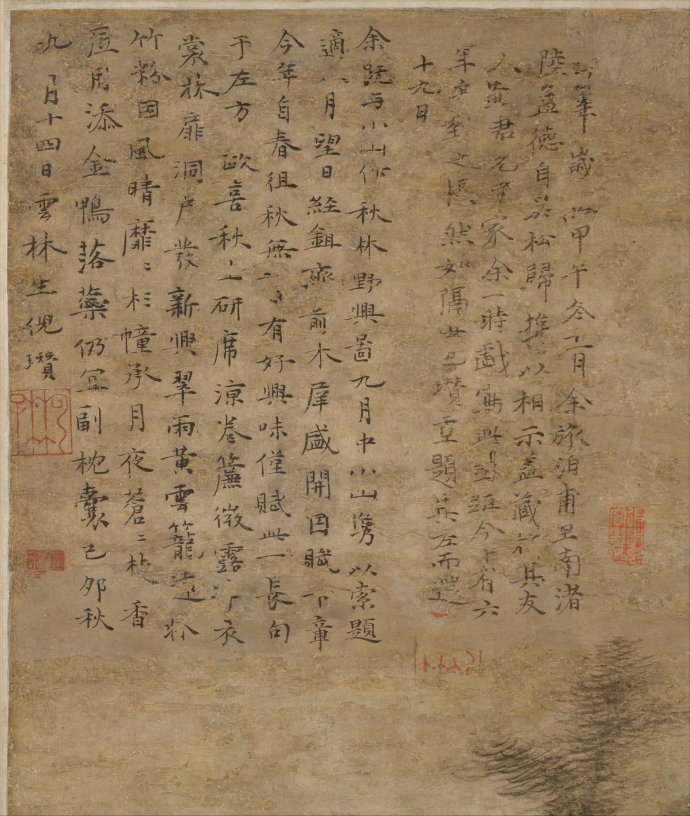 歲在甲午冬十一月余旅泊甫里南渚
陸益德自吳松歸攜以相示蓋藏於其友
人黃君允中家余一時戲寫此圖距今十有六
年矣對之悵然如隔世也瓚重題其左而還
十九日
余既與小山作秋林野興圖九月中小山攜以索題
適八月望日經鉏齋前木犀盛開因賦下章
今年自春徂秋無一日有好興味僅賦此一長句
于左方 政喜秋生研席涼卷簾微露淨衣
裳林扉洞戶發新興翠雨黃雲籠遠牀
竹粉因風晴靡〻杉幢承月夜蒼〻焚香
底用添金鴨落蘂仍宜副枕囊己卯秋
九月十四日雲林生倪瓚